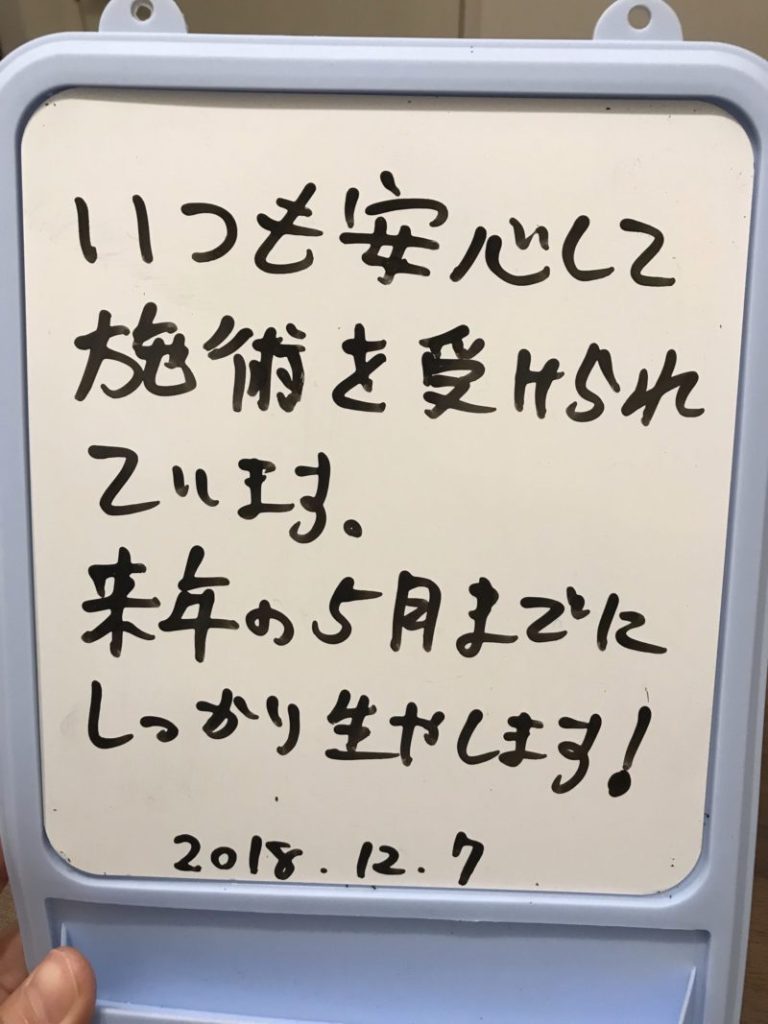 いつも安心して
施術を受けられ
ています。
来年の5月までに
しっかり生やします!
2018.12.7